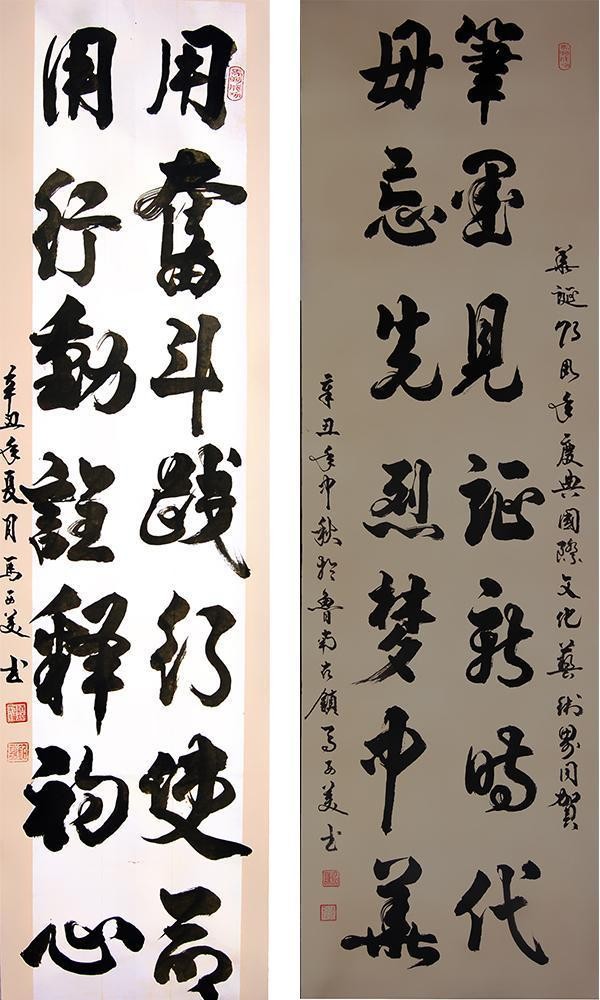 用奮斗践行使命
用行動註释初心
辛丑年夏月馬美书
華誕年慶典國際文化藝術界同賀
筆墨見証新時代
毋忘先烈梦中華
辛丑年中秋於魯南古鎮馬美书